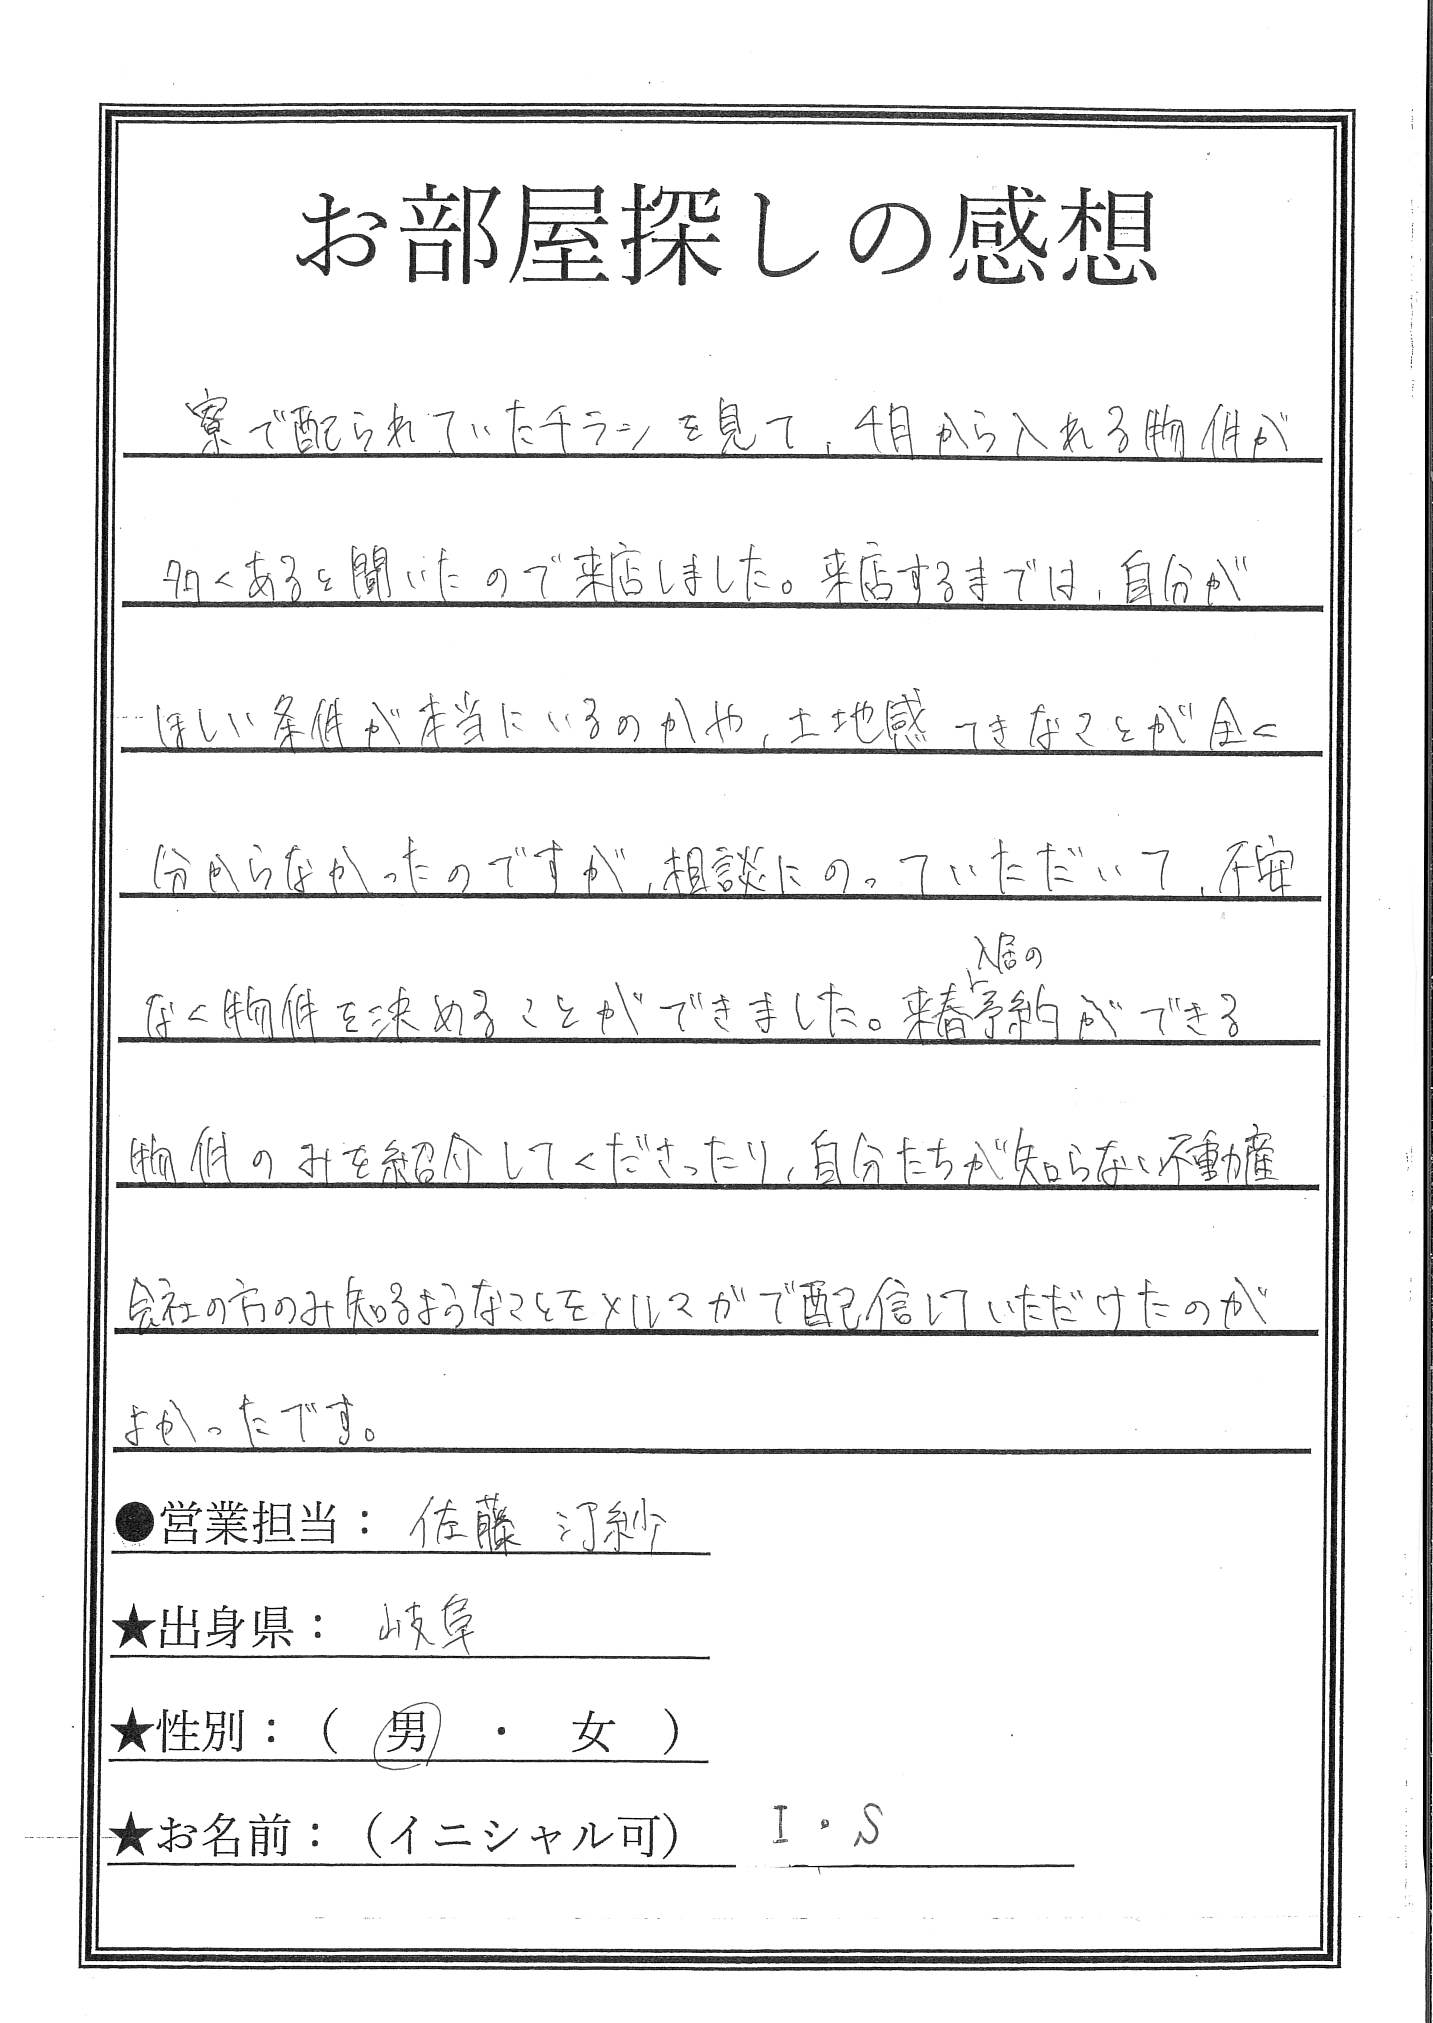 お部屋探しの感想
寮で配られていたチラシを見て、4月から入れる物件が
多くあると聞いたので来店しました。来店するまでは、自分が
ほしい条件が本当にいるのかや、土地感てきなことが全く
分からなかったのですが、相談にのっていただいて、不安
入居の
なく物件を決めることができました。来春予約ができる
物件のみを紹介してくださったり、自分たちが知らない不動産
会社の方のみ知るようなことをメルマガで配信していただけたのが
よかったです。
●営業担当：佐藤 汀紗
★出身県：岐阜
★性別：（ 男 ・ 女 ）
★お名前：（イニシャル可） I・S